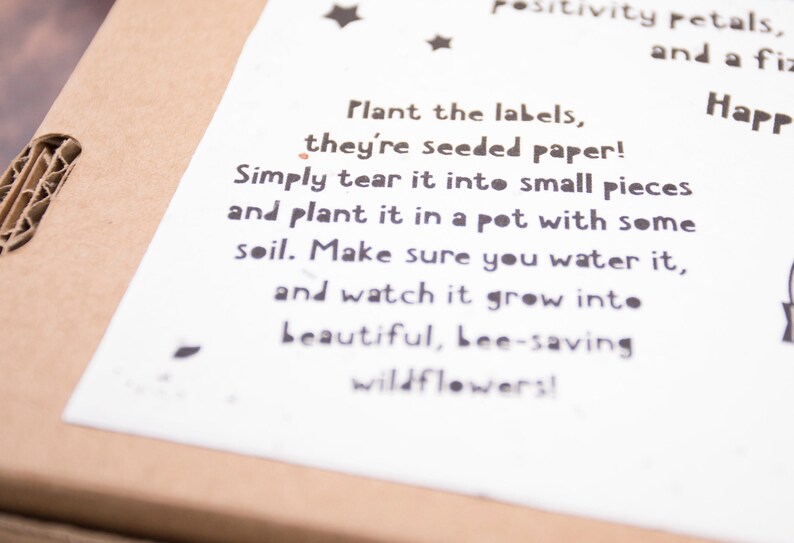 positivity petals,
and a
Plant the labels,
they're seeded paper!
Simply tear it into small pieces
and plant it in a pot with some
soil. Make sure you water it,
and watch it grow into
beautiful, bee-saving
wildflowers!